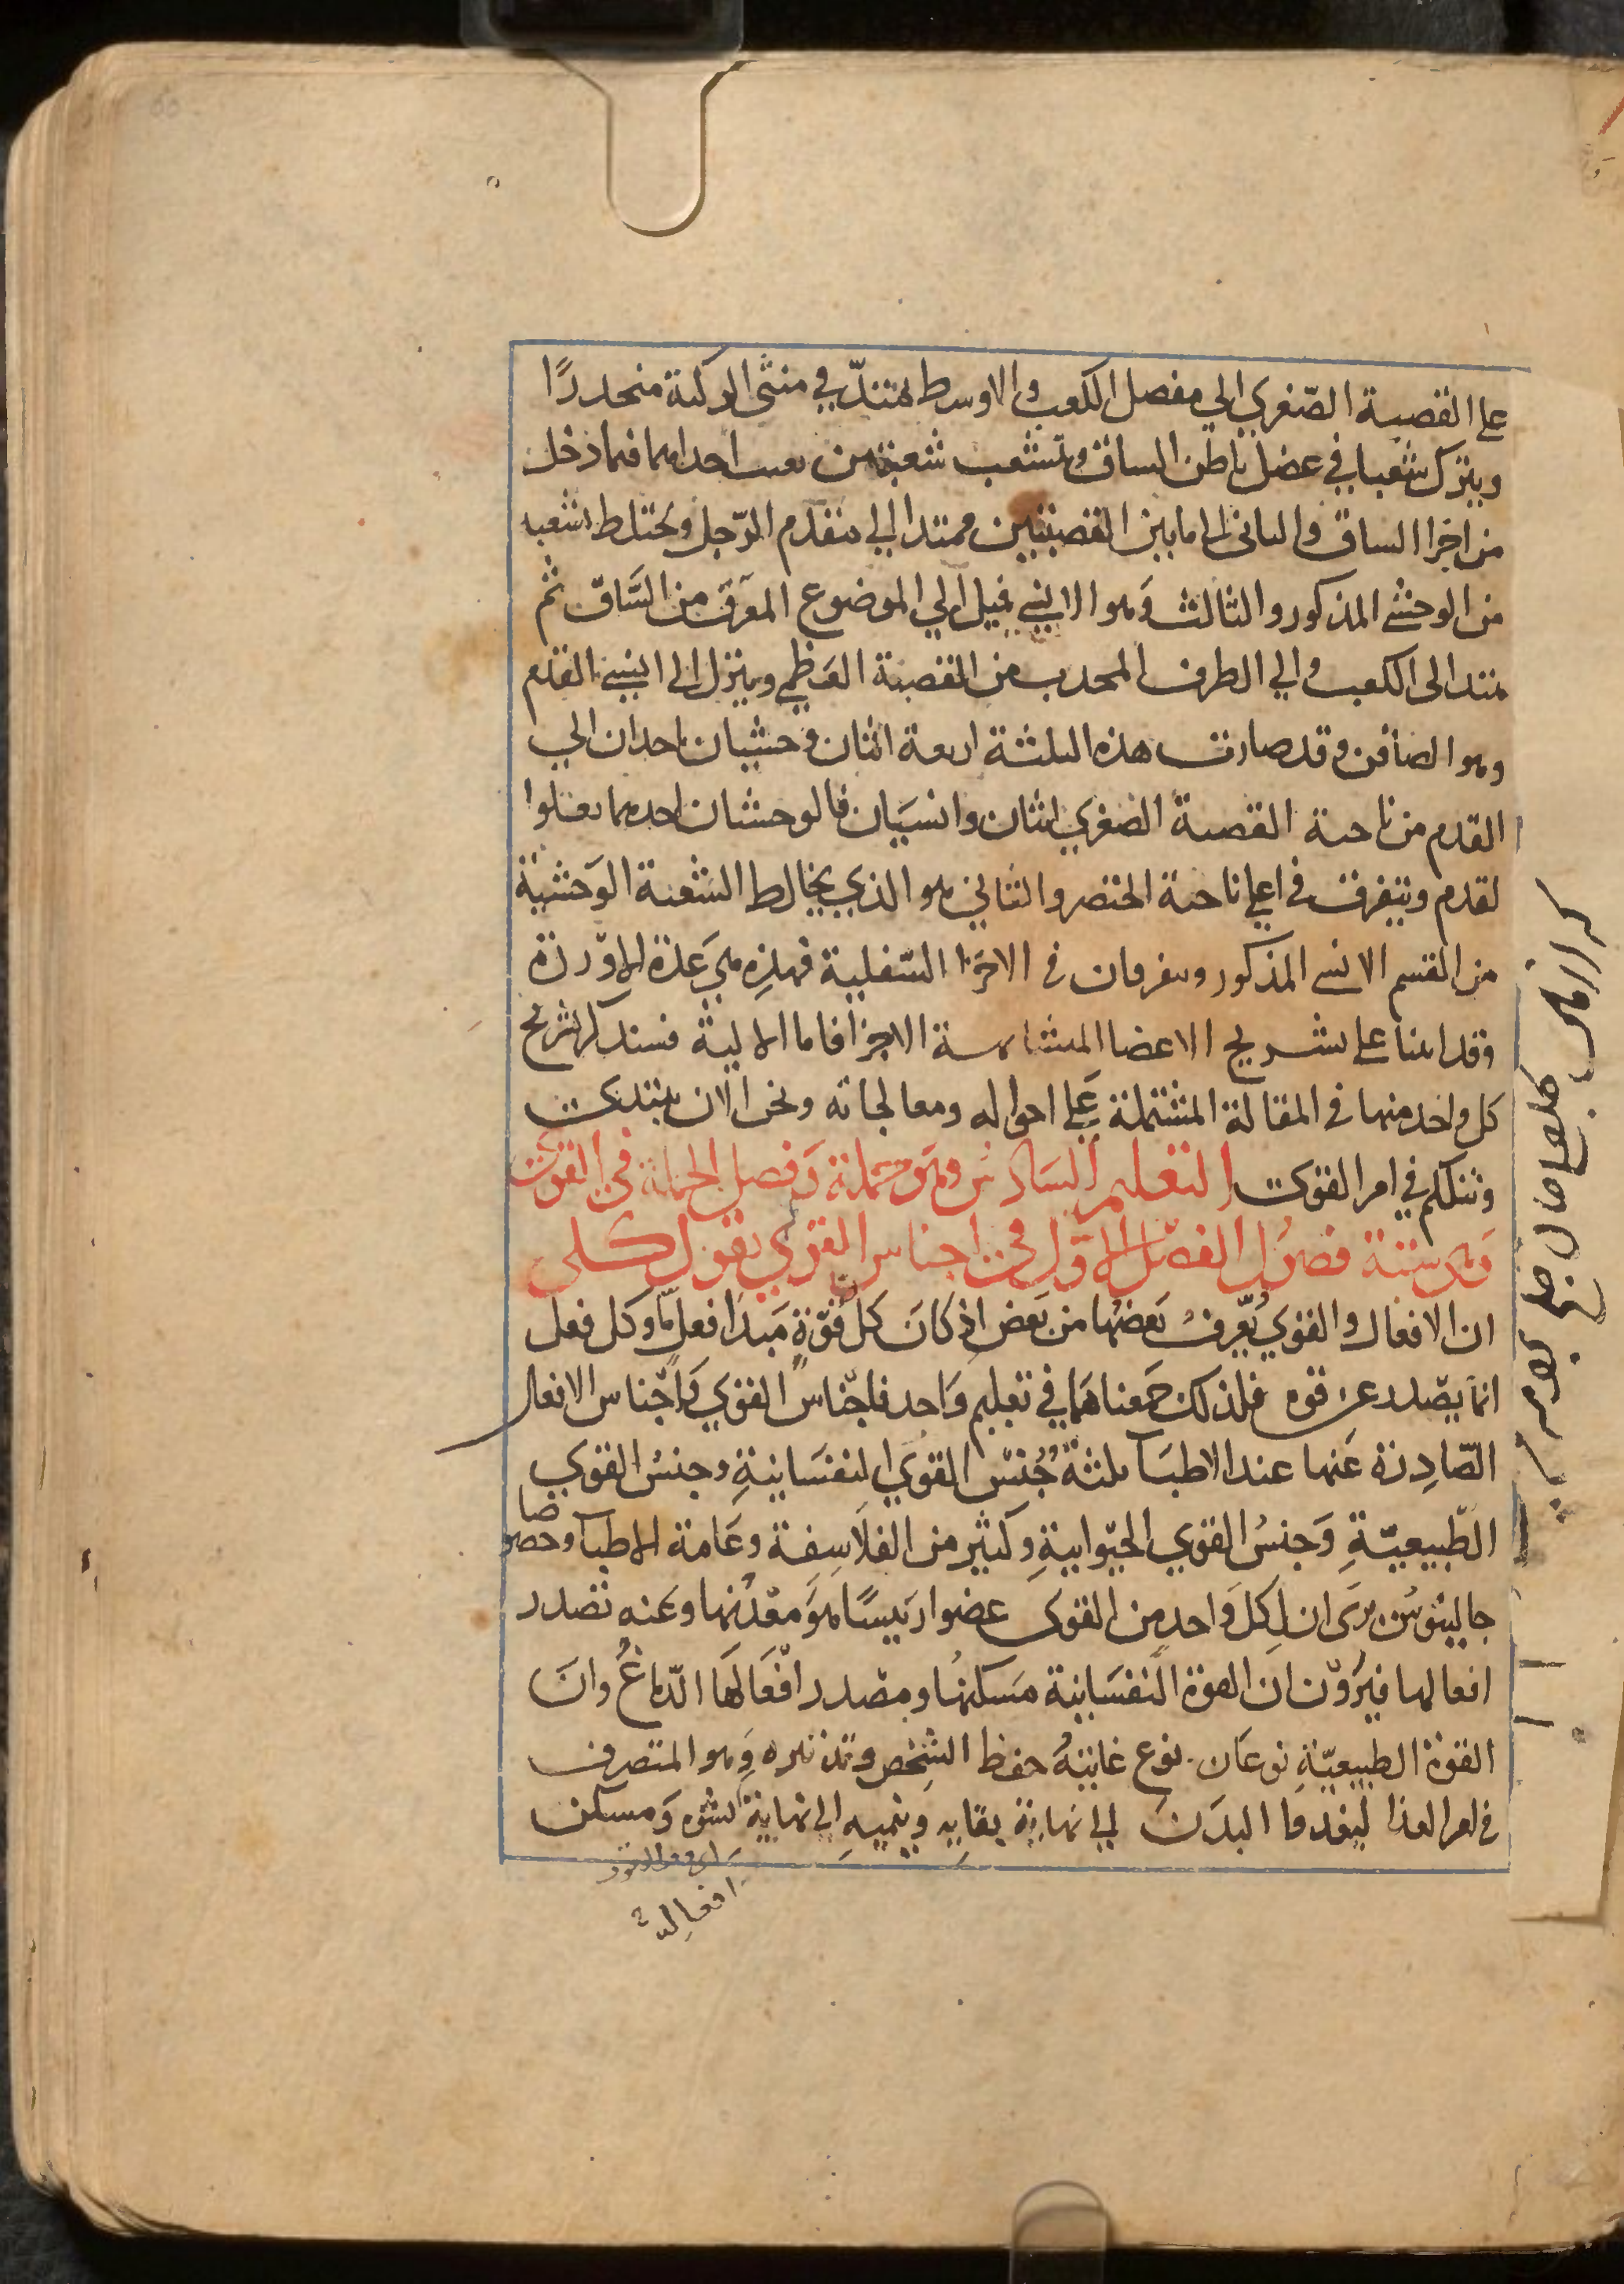 على القصبة الصّغري الي مفصل الكعب والاوسط يمتدّ في منثى الركبة منحدرًا
ويترك شعبا في عضل باطن الساق وتتشعب شعبة من احداهما فيما دخل
من اجزا الساق والثاني الى ما بين القصبتين ممتدا الي مقدم الرّجل ويختلط بشعبه
من الوحشي المذكور والثالث وهو الانسي فيميل الي الموضع المعرق من السّاق ثم
يمتد الى الكعب والي الطرف المحدب من القصبة العظمي وينزل الى انسي القدم
وهو الصافن وقد صارت هذه الثلثة اربعة اثنان وحشيان ياخذان الي
القدم من ناحية القصبة الصغري اثنان وانسيان فالوحشيان احدهما يعلوا
لقدم ويتفرق في اعلي ناحية الخنصر والثاني هو الذي يخالط الشعبة الوحشية
من القسم الانسي المذكور ويتفرقان في الاجزا السّفلية فهذه هي عدة الاوردة
وقد اتينا على تشريح الاعضا المتشابهة الاجزا فاما الالية فسنذكر تشريح
كل واحد منها في المقالة المشتملة على احواله ومعالجاته ونحن الان نبتدئ
ونتكلم في امر القوى التعليم السادس وهو جملة وفصل الجملة في القوى
وهي ستة فصول الفصل الاول في اجناس القوي بقول كلى
ان الافعال والقوي يُعرف بعضها من بعض اذ كان كل قوّة مبدا فعل مّا وكل فعل
انما يصدر عن قوه فلذلك جمعناهما في تعليم واحد فاجناس القوي واجناس الافعال
الصّادرة عنها عند الاطبا ثلثة جنس القوي النفسانية وجنس القوي
الطّبيعيّة وَجنسُ القوي الحيوانية وكثير من الفلاسفة وعامة الاطبا وخصوصا
جالينوس يرى ان لكل واحد من القوى عضوا رئيسًا هو معدنها وعنه تصدر
افعالها فيروّن ان القوة النفسانية مسكنها ومصدر افعالها الدّماغ وان
القوة الطبيعيّة نوعان نوع غايته حفظ الشخص وتدبيره وهو المتصرف
في امر الغذا ليغدوا البدن الي نهاية بقايه وينميه الى نهاية نشوه ومسكن
افعاله